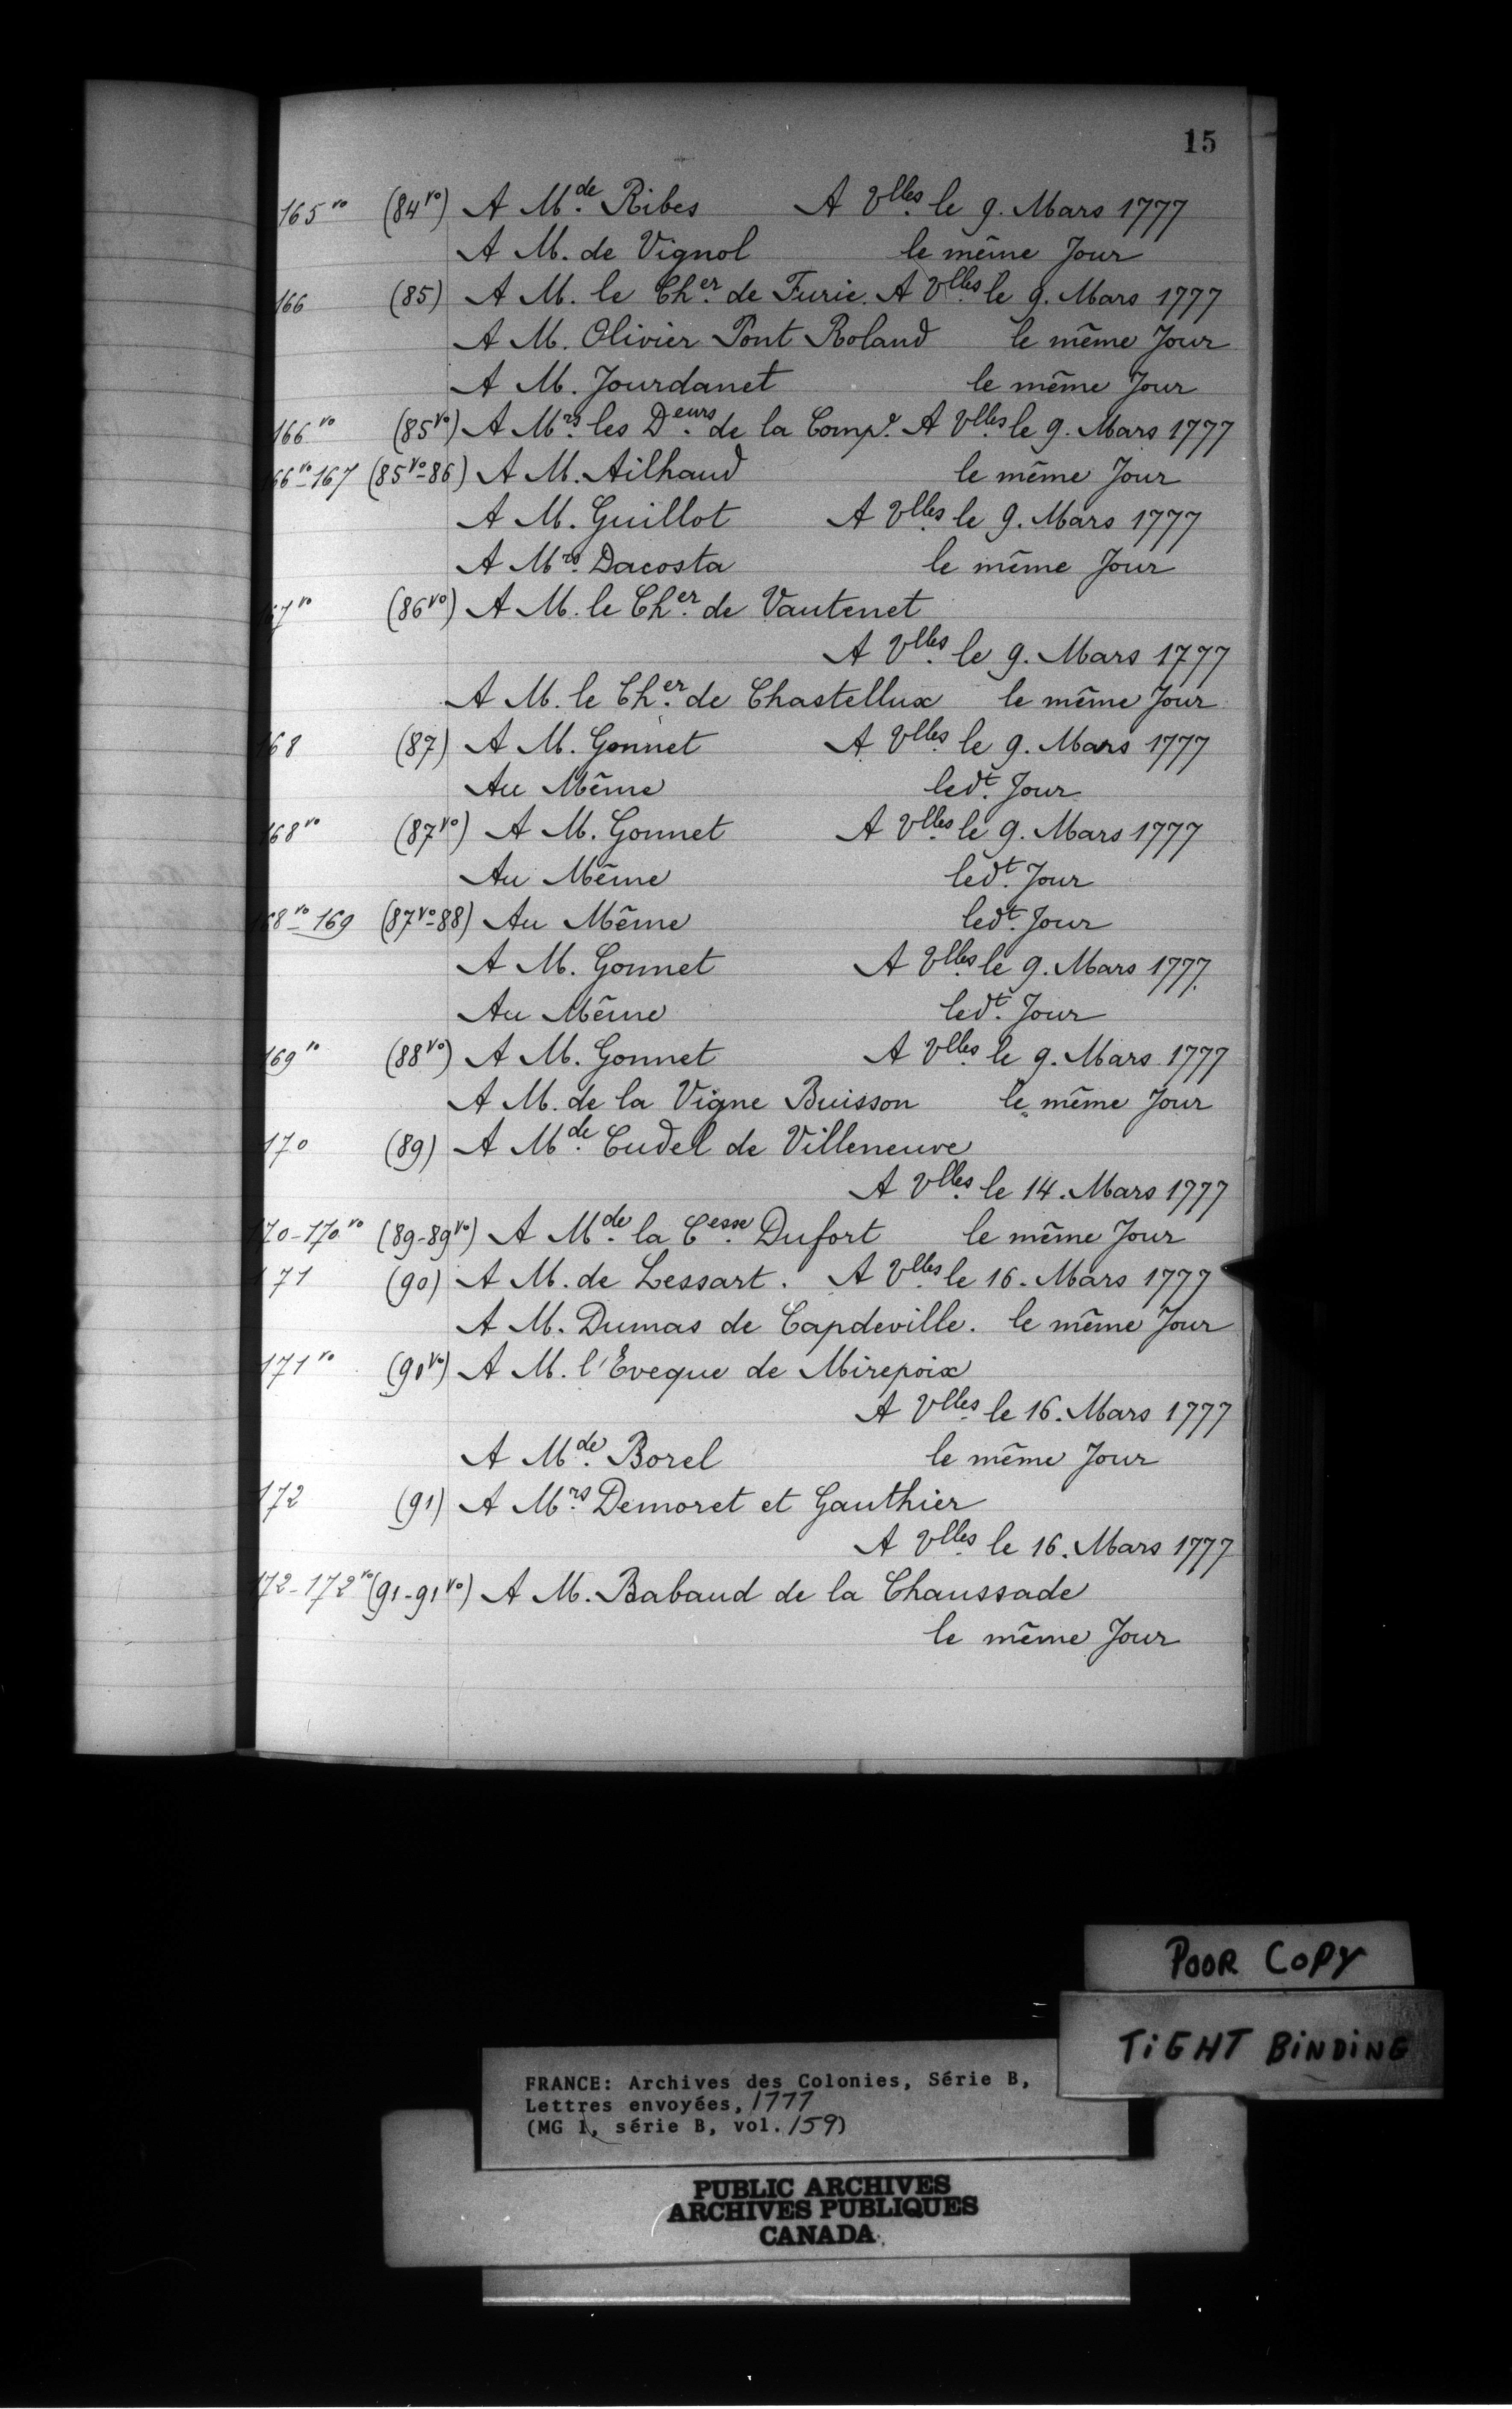 15
165 vo (84 vo) A Mde. Ribes A Vlles. le 9. Mars 1777
A M. de Vignol le même Jour
166 (85) A M. le Cher. de Turie. A Vlles. le 9. Mars 1777
A M. Olivier Pont Roland le même Jour
A M. Jourdanet le même Jour
166 vo (85 vo) A Mrs. les Deurs. de la Compe. A Vlles. le 9. Mars 1777
66 vo-167 (85 vo-86) A M. Ailhaud le même Jour
A M. Guillot A Vlles. le 9. Mars 1777
A Mrs. Dacosta le même Jour
67 vo (86 vo) A M. le Cher. de Vautenet
A Vlles. le 9. Mars 1777
A M. le Cher. de Chastellux le même Jour
168 (87) A M. Gonnet A Vlles. le 9. Mars 1777
Au Même ledt. Jour
168 vo (87 vo) A M. Gonnet A Vlles. le 9. Mars 1777
Au Même ledt. Jour
168 vo-169 (87 vo-88) Au Même ledt. Jour
A M. Gonnet A Vlles. le 9. Mars 1777.
Au Même ledt. Jour
169 vo (88 vo) A M. Gonnet A Vlles. le 9. Mars 1777
A M. de la Vigne Buisson le même Jour
170 (89) A Mde. Cudel de Villeneuve
A Vlles. le 14. Mars 1777
170-170 vo (89-89 vo) A Mde. la Cesse. Dufort le même Jour
171 (90) A M. de Lessart. A Vlles. le 16. Mars 1777
A M. Dumas de Capdeville. le même Jour
171 vo (90 vo) A M. l'Eveque de Mirepoix
A Vlles. le 16. Mars 1777
A Mde. Borel le même Jour
172 (91) A Mrs. Demoret et Gauthier
A Vlles. le 16. Mars 1777
172-172 vo (91-91 vo) A M. Babaud de la Chaussade
le même Jour
POOR COPY
TIGHT BINDING
FRANCE: Archives des Colonies, Série B,
Lettres envoyées, 1777
(MG 1, série B, vol. 159)
PUBLIC ARCHIVES
ARCHIVES PUBLIQUES
CANADA